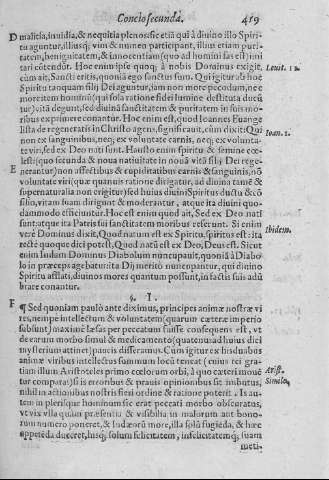 Concio secunda. 419
D malitia, inuidia, & nequitia plenos: sic etiā qui à diuino illo Spiri-
tu aguntur, illiusq́; vim & numen participant, illius etiam puri-
tatem, benignitatem, & innocentiam (quo ad homini fas est) imi
tari cōtendūt. Hoc enim ipse quoq; à nobis Dominus exigit,
cùm ait, Sancti eritis, quoniā ego sanctus sum. Qui igitur ab hoc
Leuit. 12.
Spiritu tanquam filij Dei aguntur, iam non more pecudum, nec
more item hominū (qui sola ratione fidei lumine destituta ducū
tur) vitā degunt, sed diuinā sanctitatem & puritatem in suis mo-
ribus exprimere conantur. Hoc enim est, quod Ioannes Euange
lista de regeneratis in Christo agens, significauit, cùm dixit: Qui
Ioan. 1.
non ex sanguinibus, neq; ex voluntate carnis, neq; ex volunta-
te viri, sed ex Deo nati sunt. Hausto enim spiritu & semine cœ-
lesti (quo secunda & noua natiuitate in nouā vitā filij Dei rege-
E nerantur) non affectibus & cupiditatibus carnis & sanguinis, nō
voluntate viri (quæ quamuis ratione dirigatur, ad diuina tamē &
supernaturalia non erigitur) sed huius diuini Spiritus ductu & cō
silio, vitam suam dirigunt & moderantur, atque ita diuini quo-
dammodo efficiuntur. Hoc est enim quod ait, Sed ex Deo nati
sunt: atque ita Patris sui sanctitatem moribus referunt. Si enim
verè Dominus dixit, Quod natum est ex Spiritu, spiritus est: ita
Ibidem.
rectè quoque dici potest, Quod natū est ex Deo, Deus est. Sicut
enim Iudam Dominus Diabolum nuncupauit, quoniā à Diabo-
lo in præceps agebatur: ita Dij meritò nuncupantur, qui diuino
Spiritu afflati, diuinos mores quantum possunt, in factis suis adū
brare conantur.
§. I.
F ¶ Sed quoniam paulò ante diximus, principes animæ nostræ vi
res, nempe intellectum & voluntatem (quarum cæteræ imperio
subsunt) maximè læsas per peccatum fuisse consequens est, vt
de earum morbo simul & medicamento (quatenus ad huius diei
mysterium attinet) paucis differamus. Cùm igitur ex his duabus
animæ viribus intellectus summum locū teneat (cuius rei gra-
tiam illum Aristoteles primo cœlorum orbi, à quo cæteri mouē
Arist.
tur comparat) si is erroribus & prauis opinionibus sit imbutus,
Simile.
nihil in actionibus nostris fieri ordine & ratione poterit. Is au-
tem in plerisque hominum sic erat peccati morbo obscuratus,
vt vix vlla quàm præsentia & visibilia in malorum aut bono-
rum numero poneret, & Iudæorū more, illa solū fugiēda, & hæc
appetēda duceret, hisq́; solum felicitatem, infelicitatemq́; suam
meti-